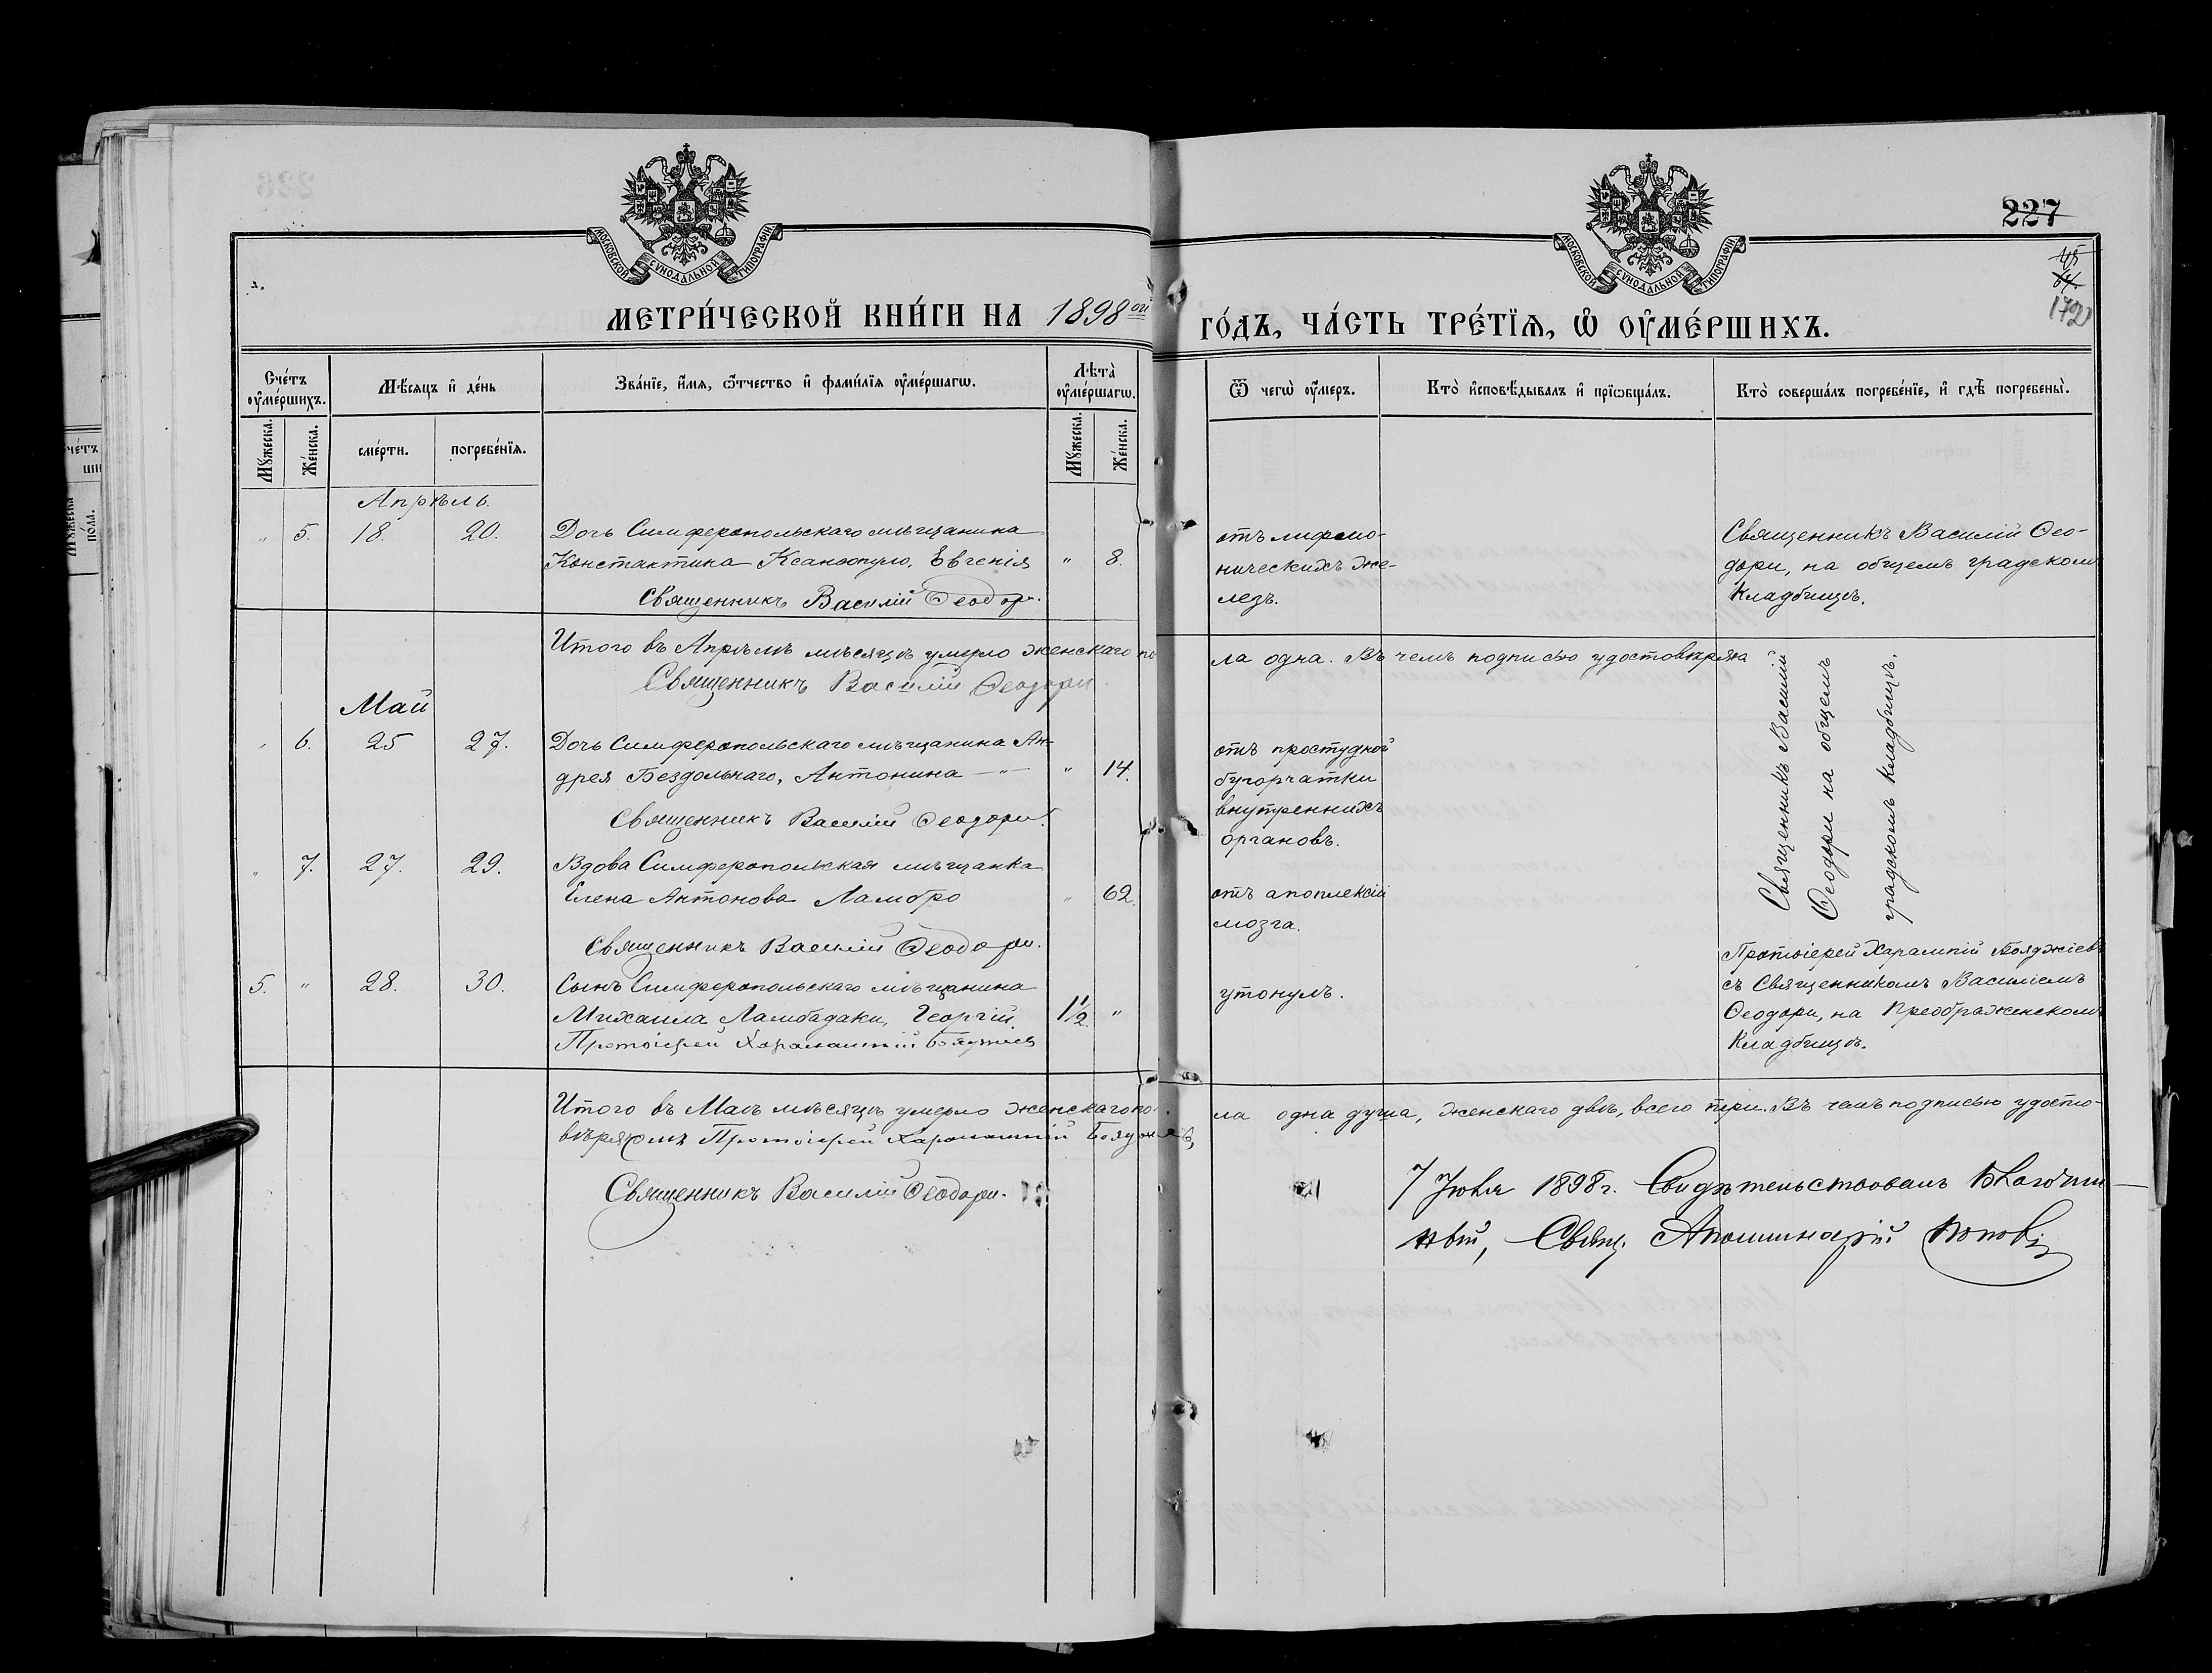 227
45
64.
172
МОСКОВСКОЙ СѴНОДАЛЬНОЙ ТИПОГРАФІИ
МОСКОВСКОЙ СѴНОДАЛЬНОЙ ТИПОГРАФІИ
МЕТРИ́ЧЕСКОЙ КНИ́ГИ НА 1898ой
ГО́ДЪ, ЧА́СТЬ ТРЕ́ТІѦ, Ѡ҆ ОУ҆МЕ́РШИХЪ.
Сче́тъ оу҆ме́ршихъ.
Мѣ́сяцъ и҆ де́нь
Зва́нїе, и҆́мя, ѻ҆́тчество и҆ фами́лїя оу҆ме́ршагѡ.
Лѣ́та оу҆ме́ршагѡ.
Ѿ чегѡ̀ оу҆́меръ.
Кто̀ и҆сповѣ́дывалъ и҆ прїѡбща́лъ.
Кто̀ соверша́лъ погребе́нїе, и҆ гдѣ̀ погребены̀.
Мꙋ́жеска. Же́нска.
сме́рти. погребе́нїя.
Мꙋ́жеска. Же́нска.
Апрѣль.
" 5. 18. 20. Дочь Симферопольскаго мѣщанина
Константина Ксанопуло, Евгенія " 8.
Священникъ Василій Ѳеодори.
отъ лифмо-
ническихъ же-
лезъ.
Священникъ Василій Ѳео-
дори, на общемъ градском
кладбищѣ.
Итого въ Апрѣлѣ мѣсяцѣ умерло женскаго по
ла одна. Въ чемъ подписью удостовѣряю
Священникъ Василій Ѳеодори.
Май
" 6. 25 27. Дочь Симферопольскаго мѣщанина Ан-
дрея Бездольнаго, Антонина — " — " 14.
Священникъ Василій Ѳеодори.
отъ простудной
бугорчатки
внутреннихъ
органовъ.
Священникъ Василій
Ѳеодори на общемъ
градскомъ кладбищѣ.
" 7. 27. 29. Вдова Симферопольская мѣщанка
Елена Антонова Ламбро " 62.
Священникъ Василій Ѳеодори.
отъ апоплексіи
мозга.
5. " 28. 30. Сынъ Симферопольскаго мѣщанина
Михаила Ламбадаки, Георгій. 1½. "
Протоіерей Харалампій Бояджіев
утонулъ.
Протоіерей Харалмпій Бояджіевъ
съ Священникомъ Василіемъ
Ѳеодори, на Преображенском
кладбищѣ.
Итого въ Маѣ мѣсяцѣ умерло женскаго по
ла одна душа, женскаго двѣ, всего три. Въ чемъ подписью удосто-
вѣряемъ Протоіерей Харалампій Бояджіевъ,
Священникъ Василій Ѳеодори.
7 Іюня 1898 г. Свидѣтельствовалъ Благочин
ный, Свящ. Аполлинарій Поповъ